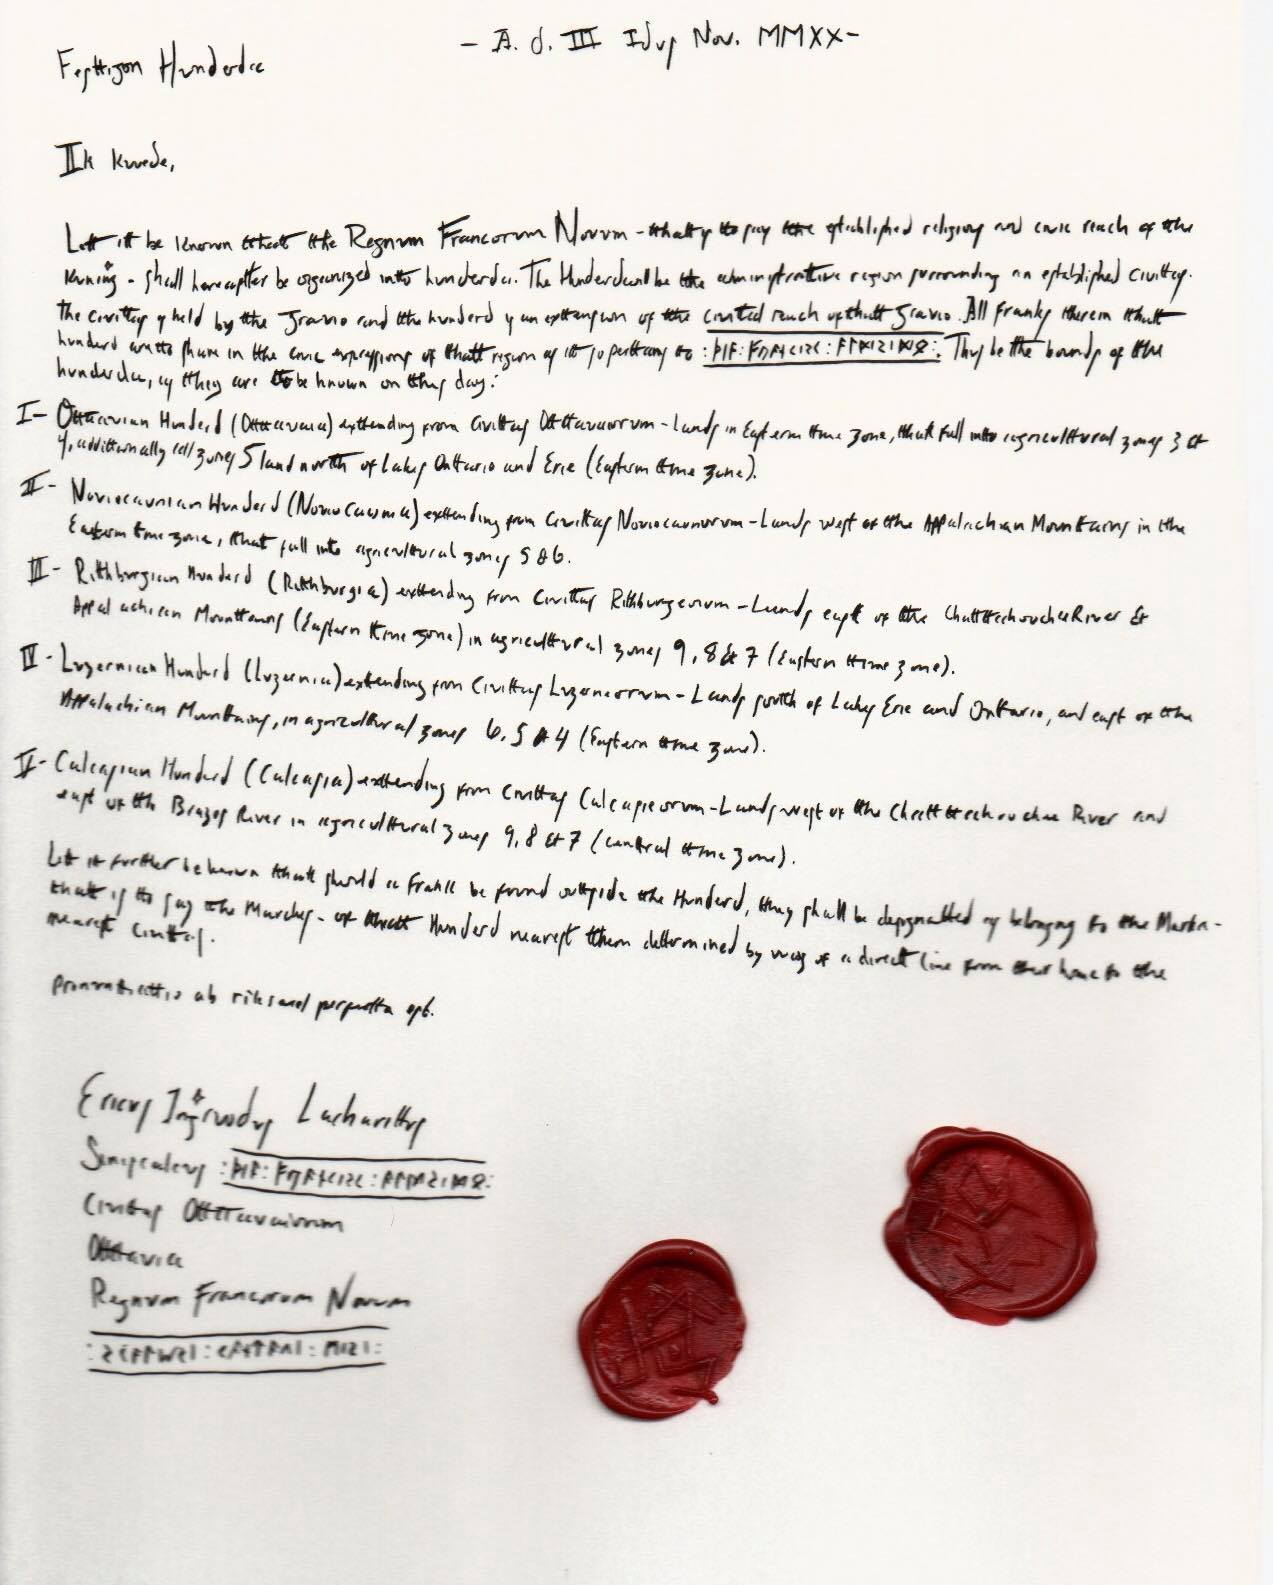 - A. d. III Idus Nov. MMXX -
Festtizon Hunderda
Ik kwede,
Lett itt be known thatt the Regnum Francorum Novum - thatt is to say the established religious and civic reach of the
kuning - shall hereaftter be organized into hunderda. The Hunderda will be the administrative region surrounding an established Civittas.
The civittas is held by the Gravio and the hunderd is an exttension of the civitted reach of thatt Gravio. All Franks therein thatt
hunderd are to share in the civic expressions of thatt region as it so perttains to
This be the bounds of the
hunderda, as they are to be known on this day:
I - Ottavian Hunderd (Ottavia) exttending from Civittas Ottavaiorum - Lands in Eastern time zone, that fall into agriculttural zones 3 &
4, additionally all zones 5 land north of Lakes Ontario and Erie (Eastern time zone).
II - Noviocaunian Hunderd (Noviocaunia) exttending from Civittas Noviocaunorum - Lands west of the Appalachian Mountains in the
Eastern time zone, that fall into agriculttural zones 5 & 6.
III - Rithburgian Hunderd (Rithburgia) exttending from Civittas Rithburgeorum - Lands east of the Chatttachouchee River &
Appalachian Mounttains (Eastern time zone) in agriculttural zones 9, 8 & 7 (Eastern time zone).
IV - Luzernian Hunderd (Luzernia) extending from Civittas Luzerneorum - Lands south of Lakes Erie and Ontario, and east of the
Appalachian Mountains, in agricultural zones 6, 5 & 4 (Eastern time zone).
V - Calcasian Hunderd (Calcasia) exttending from Civittas Calcasieorum - Lands west of the Chatttachouchee River and
east of the Brazos River in agriculttural zones 9, 8 & 7 (Central time zone).
Let it further be known thatt should a Frank be found outside the Hunderd, they shall be designatted as belonging to the Marka -
thatt is to say the Marches - of thatt Hunderd nearest them determined by way of a direct line from their home to the
nearest Civittas.
ab perpetta est.
Ericus Ingwodus Lacharittus
Civittas Ottavaiorum
Ottavia
Regnum Francorum Novum